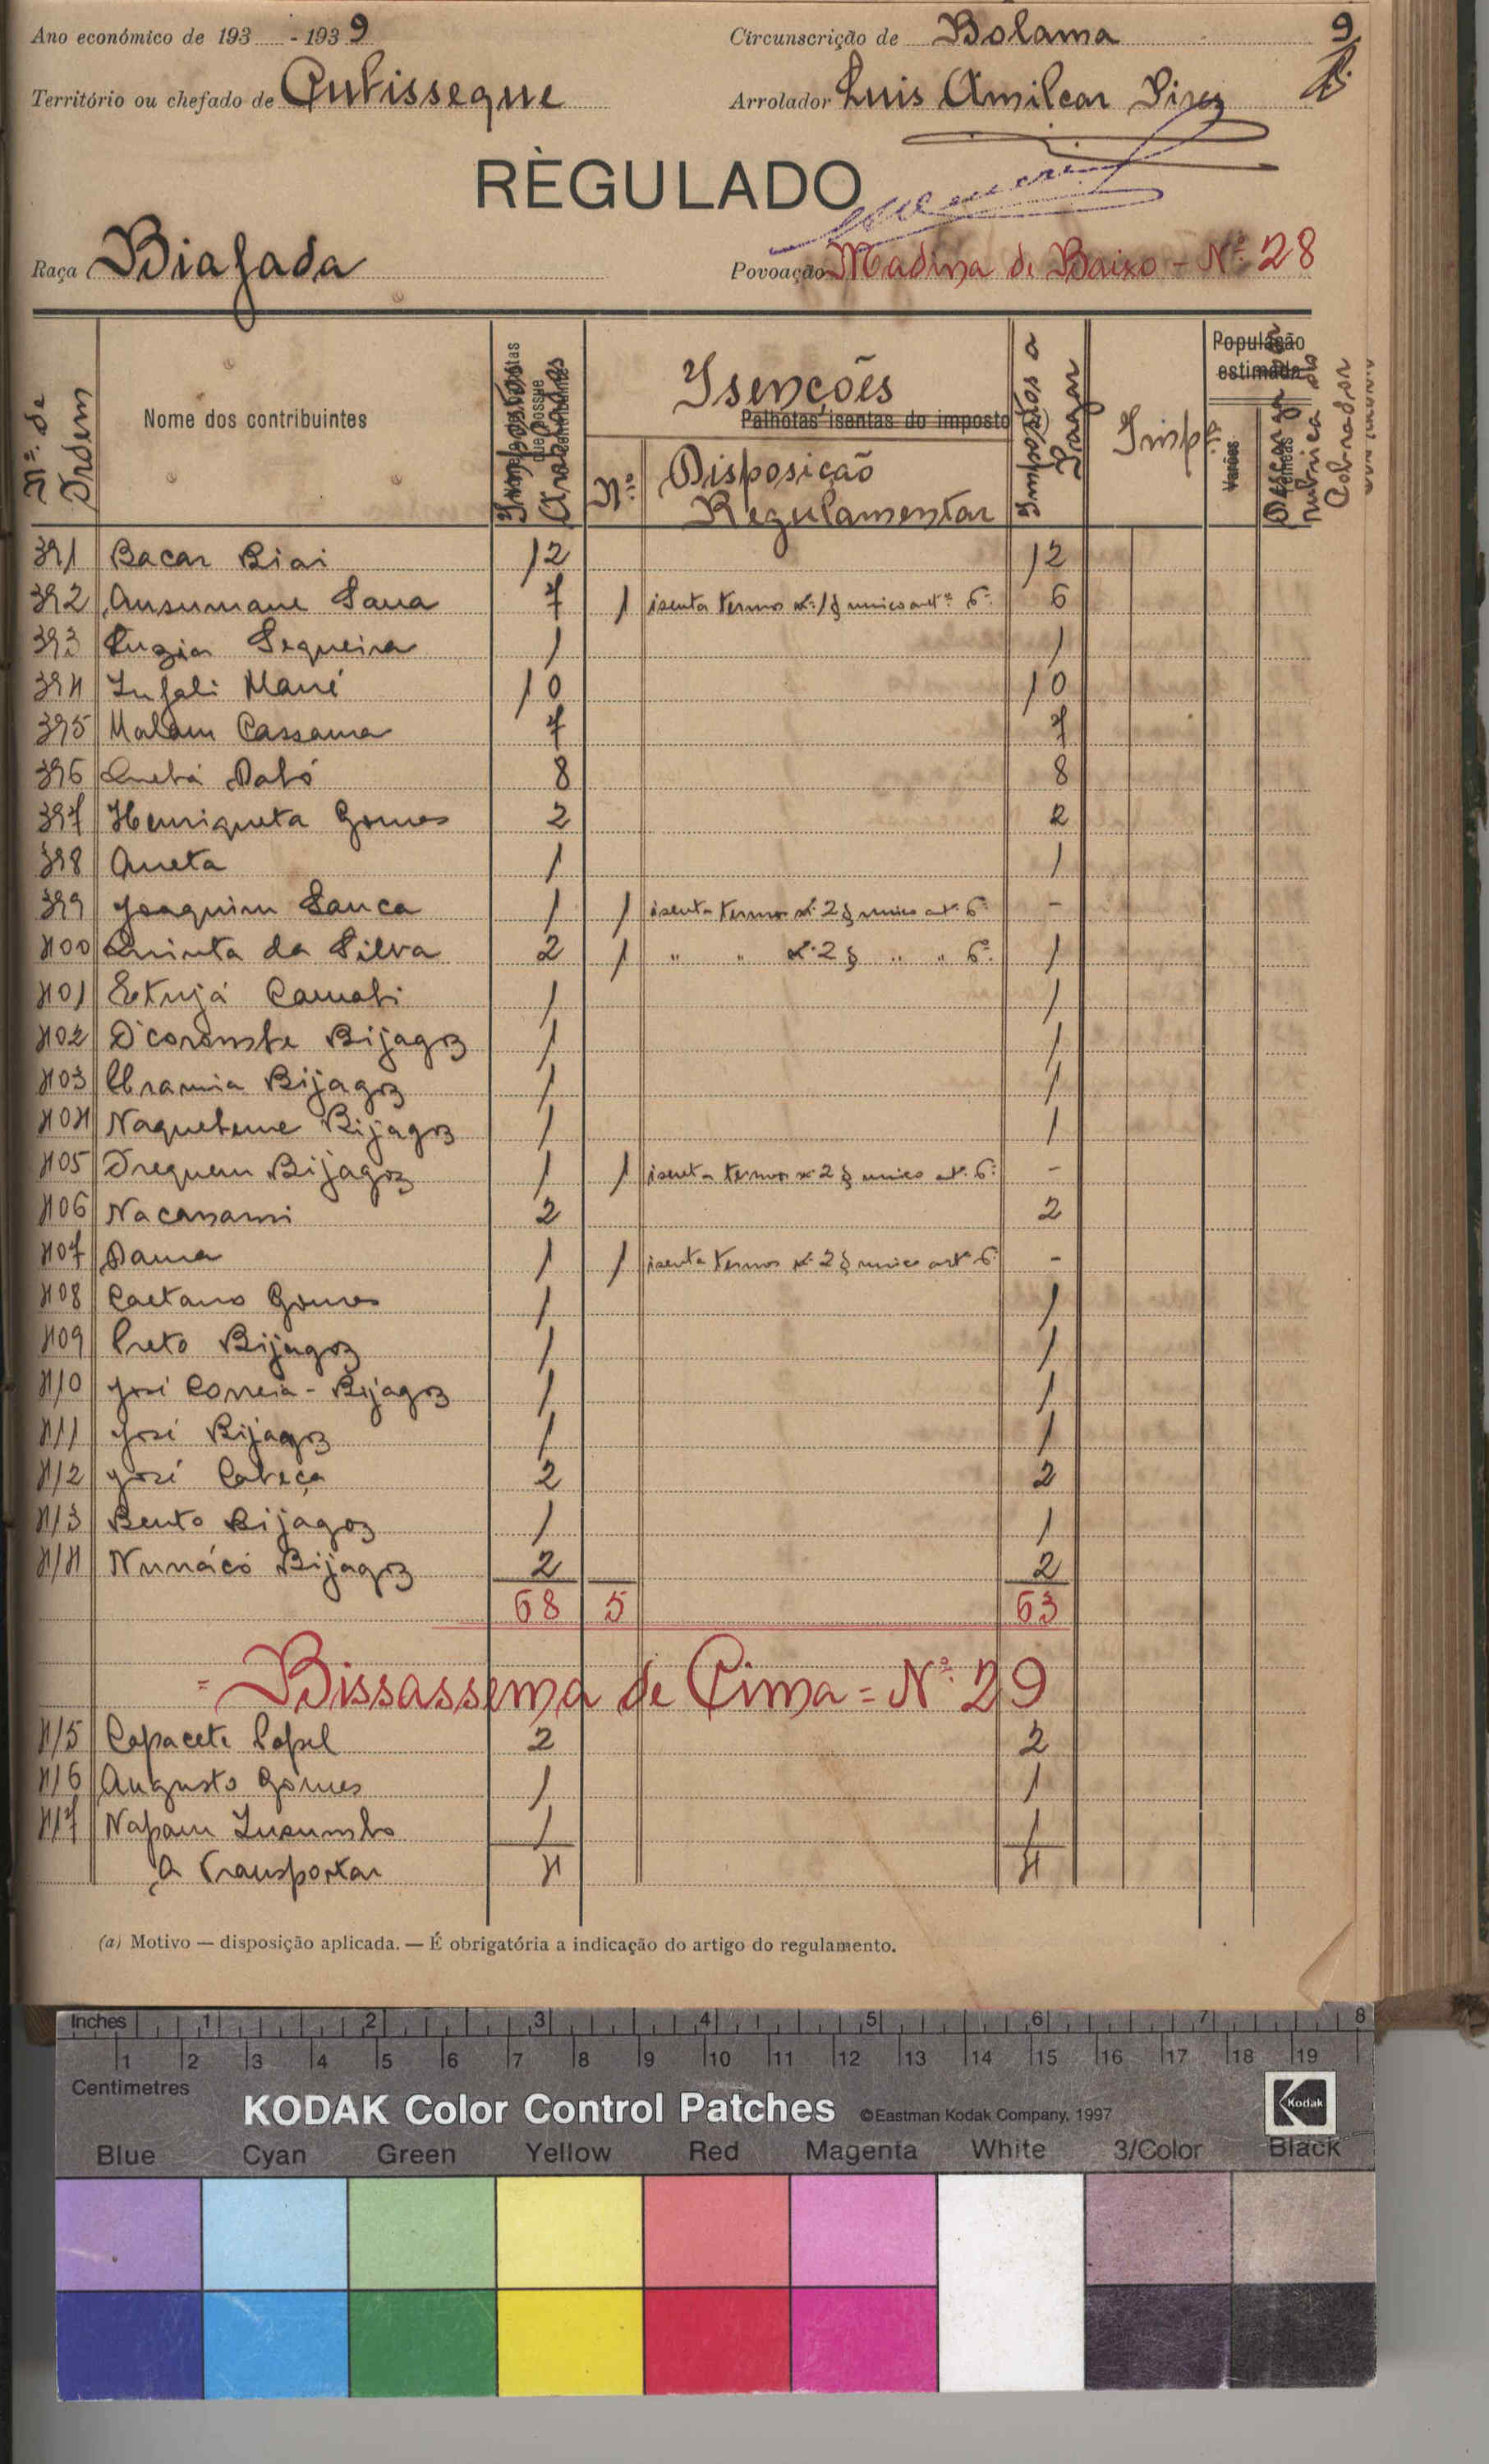 Ano económico de 193 - 1939 Circunscrição de Bolama 9
Território ou chefado de Cubisseque Arrolador Luis Amilcar Pires
RÈGULADO
Raça Biafada Povoação Madina de Baixo - Nº 28
Nº. de Ordem
Nome dos contribuintes
Impostos Arrolados
Isenções
Palhotas isentas do imposto
Nº
Disposição Regulamentar
Impostos a Pagar
Imp
População estimada
Varões
Fêmeas
rubrica do Cobrador
391 Bacar Biai 12 12
392 Ansumane Sana 7 1 isenta termos nº 1 § unico artº 6º 6
393 Luzia Sequeira 1 1
394 Infali Mané 10 10
395 Malam Cassama 7 7
396 Quebá Dabó 8 8
397 Henriqueta Gomes 2 2
398 Aneta 1 1
399 Joaquim Sanca 1 1 isenta termos nº 2 § unico artº 6º -
400 Quinta da Silva 2 1 " " nº 2 § " " 6º 1
401 Camabi 1 1
402 Bijagoz 1 1
403 Bijagoz 1 1
404 Bijagoz 1 1
405 Bijagoz 1 1 isenta termos nº 2 § unico artº 6º -
406 Nacanami 2 2
407 Dama 1 1 isenta termos nº 2 § unico artº 6º -
408 Caetano Gomes 1 1
409 Preto Bijagoz 1 1
410 José Correia - Bijagoz 1 1
411 José Bijagoz 1 1
412 José Cabeça 2 2
413 Bento Bijagoz 1 1
414 Nunácó Bijagoz 2 2
68 5 63
= Bissassema de Cima = Nº 29
415 Capacete Papel 2 2
416 Augusto Gomes 1 1
417 1 1
A Transportar 4 4
(a) Motivo — disposição aplicada. — É obrigatória a indicação do artigo do regulamento.
Inches 1 2 3 4 5 6 7 8
1 2 3 4 5 6 7 8 9 10 11 12 13 14 15 16 17 18 19
Centimetres
KODAK Color Control Patches ©Eastman Kodak Company, 1997 Kodak
Blue Cyan Green Yellow Red Magenta White 3/Color Black